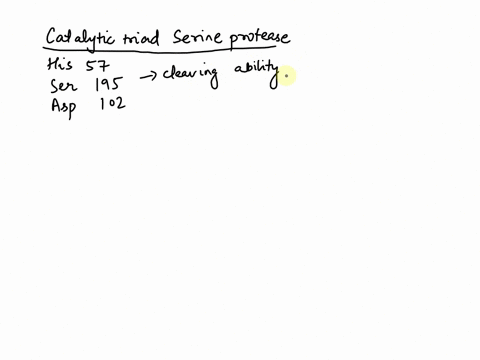 Catalytic triad Serine protease
His 57
Ser 195 → cleaving ability
Asp 102